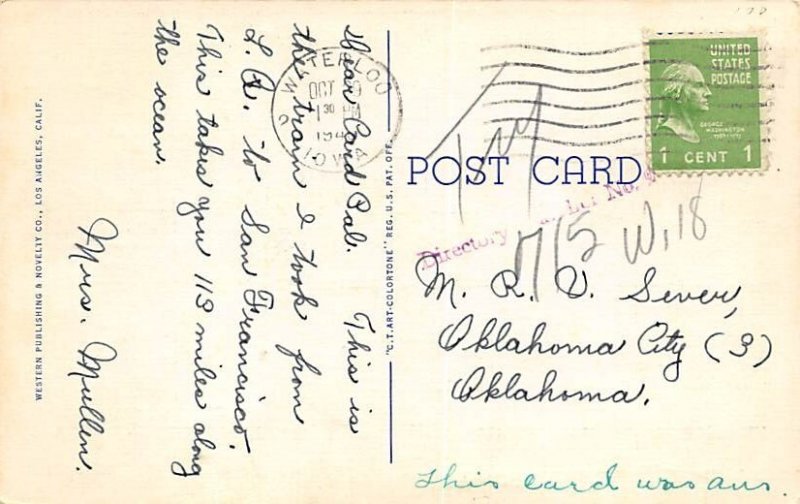 Dear Card Pal. This is
the train I took from
L.A. to San Francisco.
This takes you 113 miles along
the ocean.
Mrs. Mullen.
WESTERN PUBLISHING & NOVELTY CO., LOS ANGELES, CALIF.
"C.T. ART-COLORTONE" REG. U.S. PAT. OFF.
WATERLOO
OCT
1 30 PM
194
IOWA
UNITED
STATES
POSTAGE
GEORGE
WASHINGTON
1 CENT 1
POST CARD
Try
Directory No.
1715 W. 18
M. R. V. Sever,
Oklahoma City (3)
Oklahoma.
this card was ans